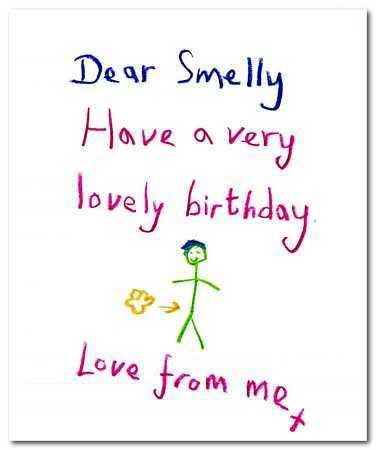 Dear Smelly
Have a very
lovely birthday.
Love from me
x